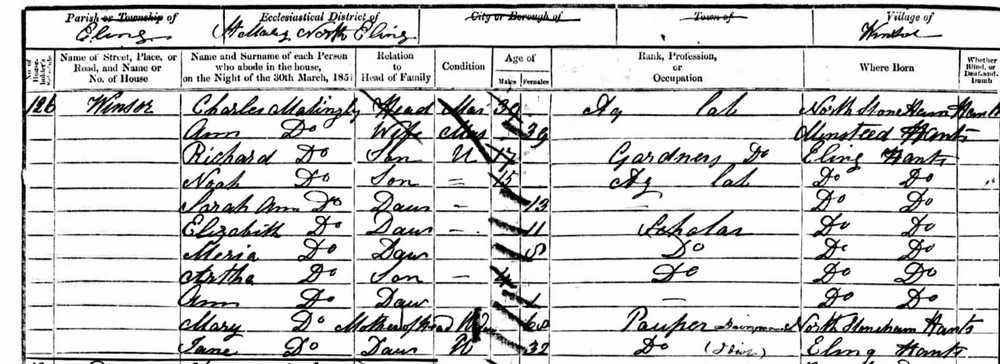 Parish or Township of Ecclesiastical District of City or Borough of Town of Village of
Eling St Mary North Eling Winsor
No. of House- Name of Street, Place, or Road, and Name or No. of House Name and Surname of each Person who abode in the house, on the Night of the 30th March, 1851 Relation to Head of Family Condition Age of Males Females Rank, Profession, or Occupation Where Born Whether Blind, or Deaf-and-Dumb
126 Winsor Charles Matingly Head Mar 39 Ag lab North Stoneham Hants
Ann Do Wife Mar 39 Minsteed Hants
Richard Do Son U 17 Gardners Do Eling Hants
Noah Do Son – 15 Ag lab Do Do
Sarah Ann Do Daur – 13 – Do Do
Elizabith Do Daur – 11 Scholar Do Do
Meria Do Daur 8 Do Do Do
Artha Do Son – 4 Do Do Do
Ann Do Daur 1 – Do Do
Mary Do Mother of Head 68 Pauper North Stoneham Hants
Jane Do Daur U 32 Do Eling Hants